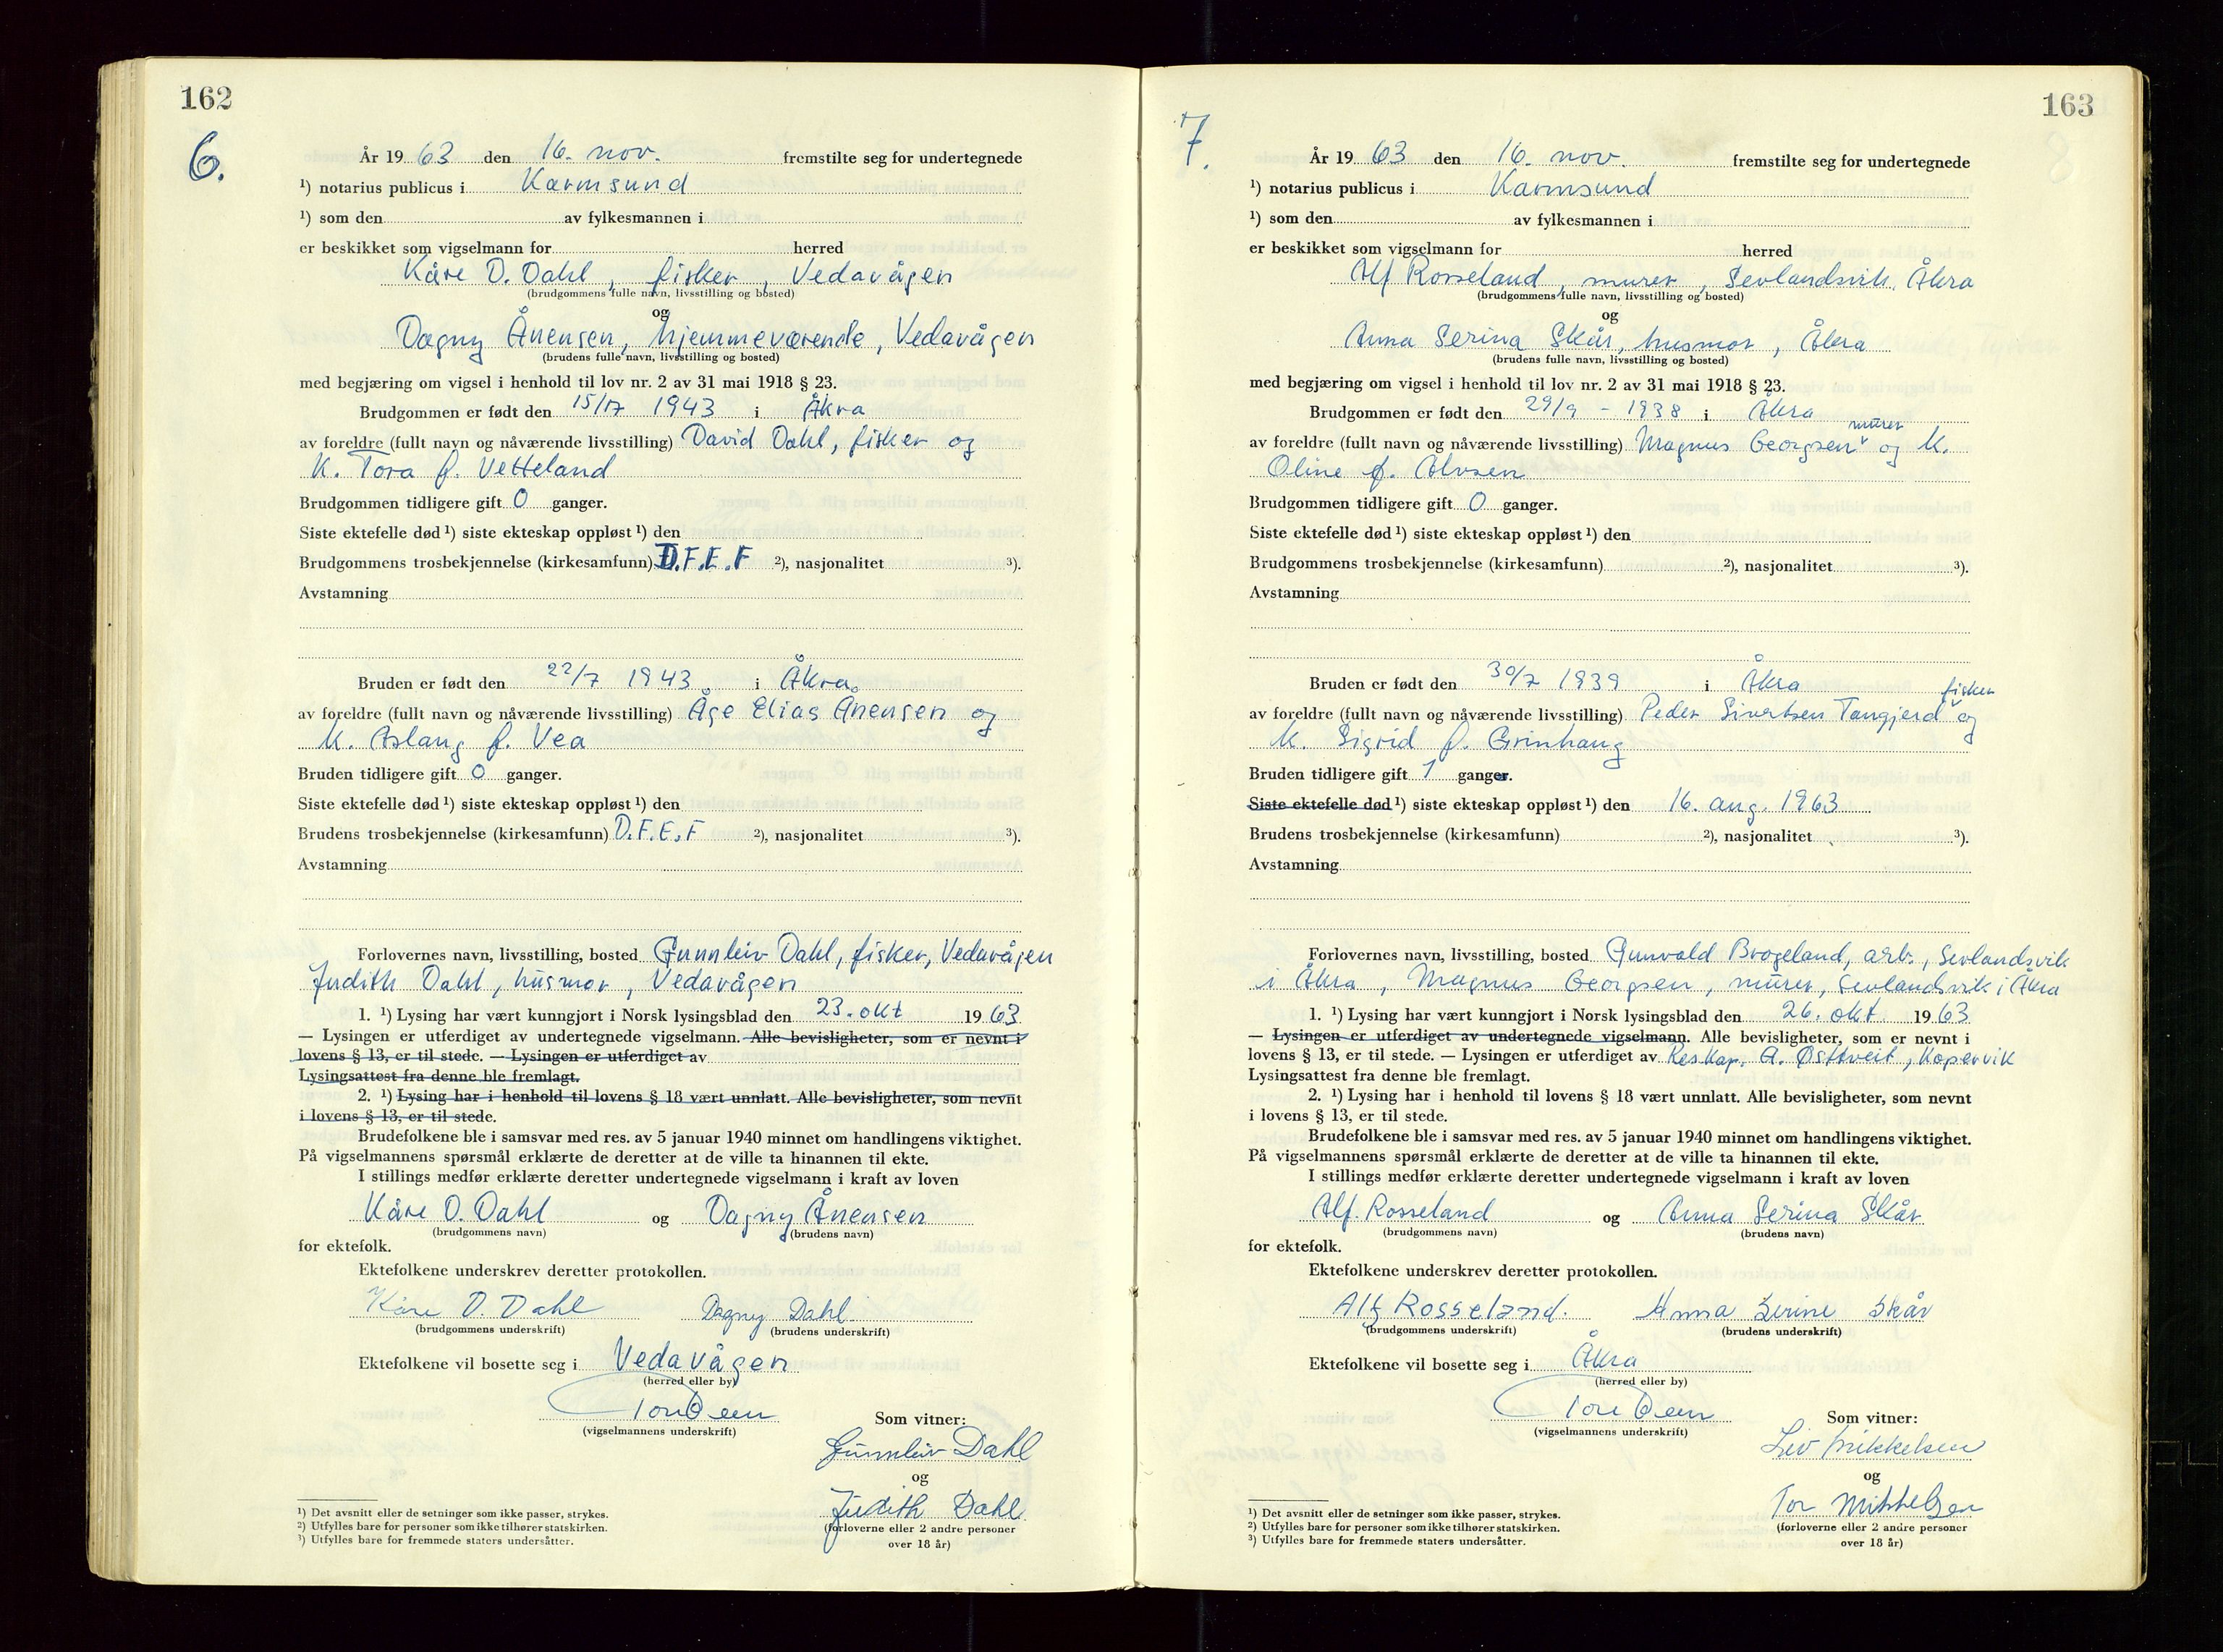 162
6.
År 1963 den 16. nov. fremstilte seg for undertegnede
¹) notarius publicus i Karmsund
¹) som den av fylkesmannen i
er beskikket som vigselmann for herred
Kåre D. Dahl, fisker, Vedavågen
(brudgommens fulle navn, livsstilling og bosted)
og
Dagny Ånensen, hjemmeværende, Vedavågen
(brudens fulle navn, livsstilling og bosted)
med begjæring om vigsel i henhold til lov nr. 2 av 31 mai 1918 § 23.
Brudgommen er født den 1943 i Åkra
av foreldre (fullt navn og nåværende livsstilling) David Dahl, fisker og
K. Tora f. Vetteland
Brudgommen tidligere gift 0 ganger.
Siste ektefelle død ¹) siste ekteskap oppløst ¹) den
Brudgommens trosbekjennelse (kirkesamfunn) D.F.E.F ²), nasjonalitet ³).
Avstamning
Bruden er født den 22/7 1943 i Åkra.
av foreldre (fullt navn og nåværende livsstilling) Åge Elias Ånensen og
K. Aslaug f. Vea
Bruden tidligere gift 0 ganger.
Siste ektefelle død ¹) siste ekteskap oppløst ¹) den
Brudens trosbekjennelse (kirkesamfunn) D.F.E.F ²), nasjonalitet ³).
Avstamning
Forlovernes navn, livsstilling, bosted Gunnleiv Dahl, fisker, Vedavågen
Judith Dahl, husmor, Vedavågen
1. ¹) Lysing har vært kunngjort i Norsk lysingsblad den 23. okt 1963
— Lysingen er utferdiget av undertegnede vigselmann. Alle bevisligheter, som er nevnt i
lovens § 13, er til stede. — Lysingen er utferdiget av
Lysingsattest fra denne ble fremlagt.
2. ¹) Lysing har i henhold til lovens § 18 vært unnlatt. Alle bevisligheter, som nevnt
i lovens § 13, er til stede.
Brudefolkene ble i samsvar med res. av 5 januar 1940 minnet om handlingens viktighet.
På vigselmannens spørsmål erklærte de deretter at de ville ta hinannen til ekte.
I stillings medfør erklærte deretter undertegnede vigselmann i kraft av loven
Kåre D. Dahl og Dagny Ånensen
(brudgommens navn) (brudens navn)
for ektefolk.
Ektefolkene underskrev deretter protokollen.
Kåre D. Dahl Dagny Dahl
(brudgommens underskrift) (brudens underskrift)
Ektefolkene vil bosette seg i Vedavågen
(herred eller by)
(vigselmannens underskrift)
Som vitner:
Gunnleiv Dahl
og
Judith Dahl
(forloverne eller 2 andre personer
over 18 år)
¹) Det avsnitt eller de setninger som ikke passer, strykes.
²) Utfylles bare for personer som ikke tilhører statskirken.
³) Utfylles bare for fremmede staters undersåtter.
163
7.
År 1963 den 16. nov. fremstilte seg for undertegnede
¹) notarius publicus i Karmsund
¹) som den av fylkesmannen i
er beskikket som vigselmann for herred
Alf Rosseland, murer, Sevlandsvik, Åkra
(brudgommens fulle navn, livsstilling og bosted)
og
Anna Serina Skår, husmor, Åkra
(brudens fulle navn, livsstilling og bosted)
med begjæring om vigsel i henhold til lov nr. 2 av 31 mai 1918 § 23.
Brudgommen er født den 29/9 - 1938 i Åkra
murer
av foreldre (fullt navn og nåværende livsstilling) Magnus Georgsen og K.
Oline f. Alvsen
Brudgommen tidligere gift 0 ganger.
Siste ektefelle død ¹) siste ekteskap oppløst ¹) den
Brudgommens trosbekjennelse (kirkesamfunn) ²), nasjonalitet ³).
Avstamning
Bruden er født den 30/7 1939 i Åkra
fisker
av foreldre (fullt navn og nåværende livsstilling) Peder Sivertsen Tangjerd og
K. Sigrid f. Grinhaug
Bruden tidligere gift 1 ganger.
Siste ektefelle død ¹) siste ekteskap oppløst ¹) den 16. aug. 1963
Brudens trosbekjennelse (kirkesamfunn) ²), nasjonalitet ³).
Avstamning
Forlovernes navn, livsstilling, bosted Gunvald Brogeland, arb., Sevlandsvik
i Åkra, Magnus Georgsen, murer, Sevlandsvik i Åkra
1. ¹) Lysing har vært kunngjort i Norsk lysingsblad den 26. okt. 1963
— Lysingen er utferdiget av undertegnede vigselmann. Alle bevisligheter, som er nevnt i
lovens § 13, er til stede. — Lysingen er utferdiget av Res.kap. A. Østtveit, Kopervik
Lysingsattest fra denne ble fremlagt.
2. ¹) Lysing har i henhold til lovens § 18 vært unnlatt. Alle bevisligheter, som nevnt
i lovens § 13, er til stede.
Brudefolkene ble i samsvar med res. av 5 januar 1940 minnet om handlingens viktighet.
På vigselmannens spørsmål erklærte de deretter at de ville ta hinannen til ekte.
I stillings medfør erklærte deretter undertegnede vigselmann i kraft av loven
Alf. Rosseland og Anna Serina Skår
(brudgommens navn) (brudens navn)
for ektefolk.
Ektefolkene underskrev deretter protokollen.
Alf Rosseland. Anna Serine Skår
(brudgommens underskrift) (brudens underskrift)
Ektefolkene vil bosette seg i Åkra
(herred eller by)
(vigselmannens underskrift)
Som vitner:
Liv Mikkelsen
og
Tor Mikkelsen
(forloverne eller 2 andre personer
over 18 år)
¹) Det avsnitt eller de setninger som ikke passer, strykes.
²) Utfylles bare for personer som ikke tilhører statskirken.
³) Utfylles bare for fremmede staters undersåtter.